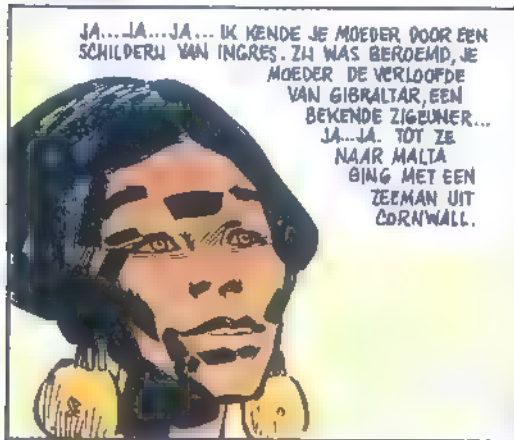 JA...JA...JA... IK KENDE JE MOEDER DOOR EEN
SCHILDERIJ VAN INGRES. ZIJ WAS BEROEMD, JE
MOEDER DE VERLOOFDE
VAN GIBRALTAR, EEN
BEKENDE ZIGEUNER...
JA...JA. TOT ZE
NAAR MALTA
GING MET EEN
ZEEMAN UIT
CORNWALL.